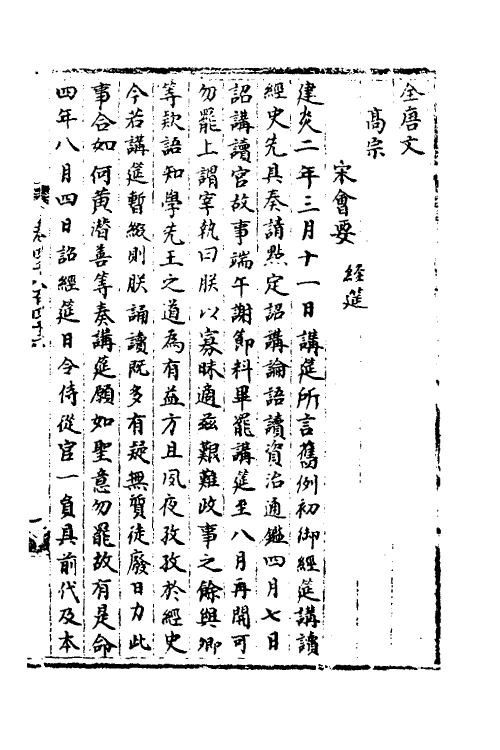 全唐文
高宗
宋會要 經筵
建炎二年三月十一日講筵所言舊例初御經筵講讀
經史先具奏請點定詔講論語讀資治通鑑四月七日
詔講讀官故事端午謝節料畢罷講筵至八月再開可
勿罷上謂宰執曰朕以寡昧適茲艱難政事之餘與卿
等款語知學先王之道為有益方且夙夜孜孜於經史
今若講筵暫綴則朕誦讀既多有疑無質徒廢日力此
事合如何黃潛善等奏講筵願如聖意勿罷故有是命
四年八月四日詔經筵日令侍從官一員具前代及本